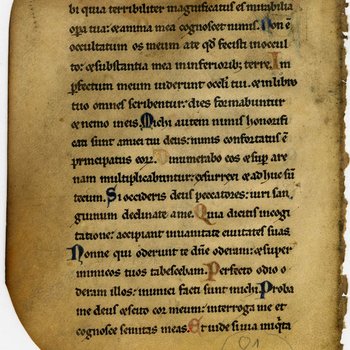 bi quia terribiliter magnificatus es mirabilia
opa tua: et anima mea cognoscet nimis. Non ē
occultatum os meum a te qd fecisti in occul
to: et substantia mea in inferiorib; terre. In
pfectum meum uiderunt oculi tui. et in libro
tuo omnes scribentur: dies formabuntur
et nemo in eis. Michi autem nimis honorifi
cati sunt amici tui deus: nimis confortatus ē
principatus eorz. Dinumerabo eos et sup are
nam multiplicabuntur: exsurrexi et adhuc sū
tecum. Si occideris deus peccatores: uiri san
guinum declinate a me. Quia dicitis in cogi
tatione: accipiant in uanitate ciuitates suas
Nonne qui oderunt te dn̄e oderam: et super
inimicos tuos tabescebam. Perfecto odio o
deram illos: inimici facti sunt michi. Proba
me deus et scito cor meum: interroga me et
cognosce semitas meas. Et uide si uia iniq̇ta
91